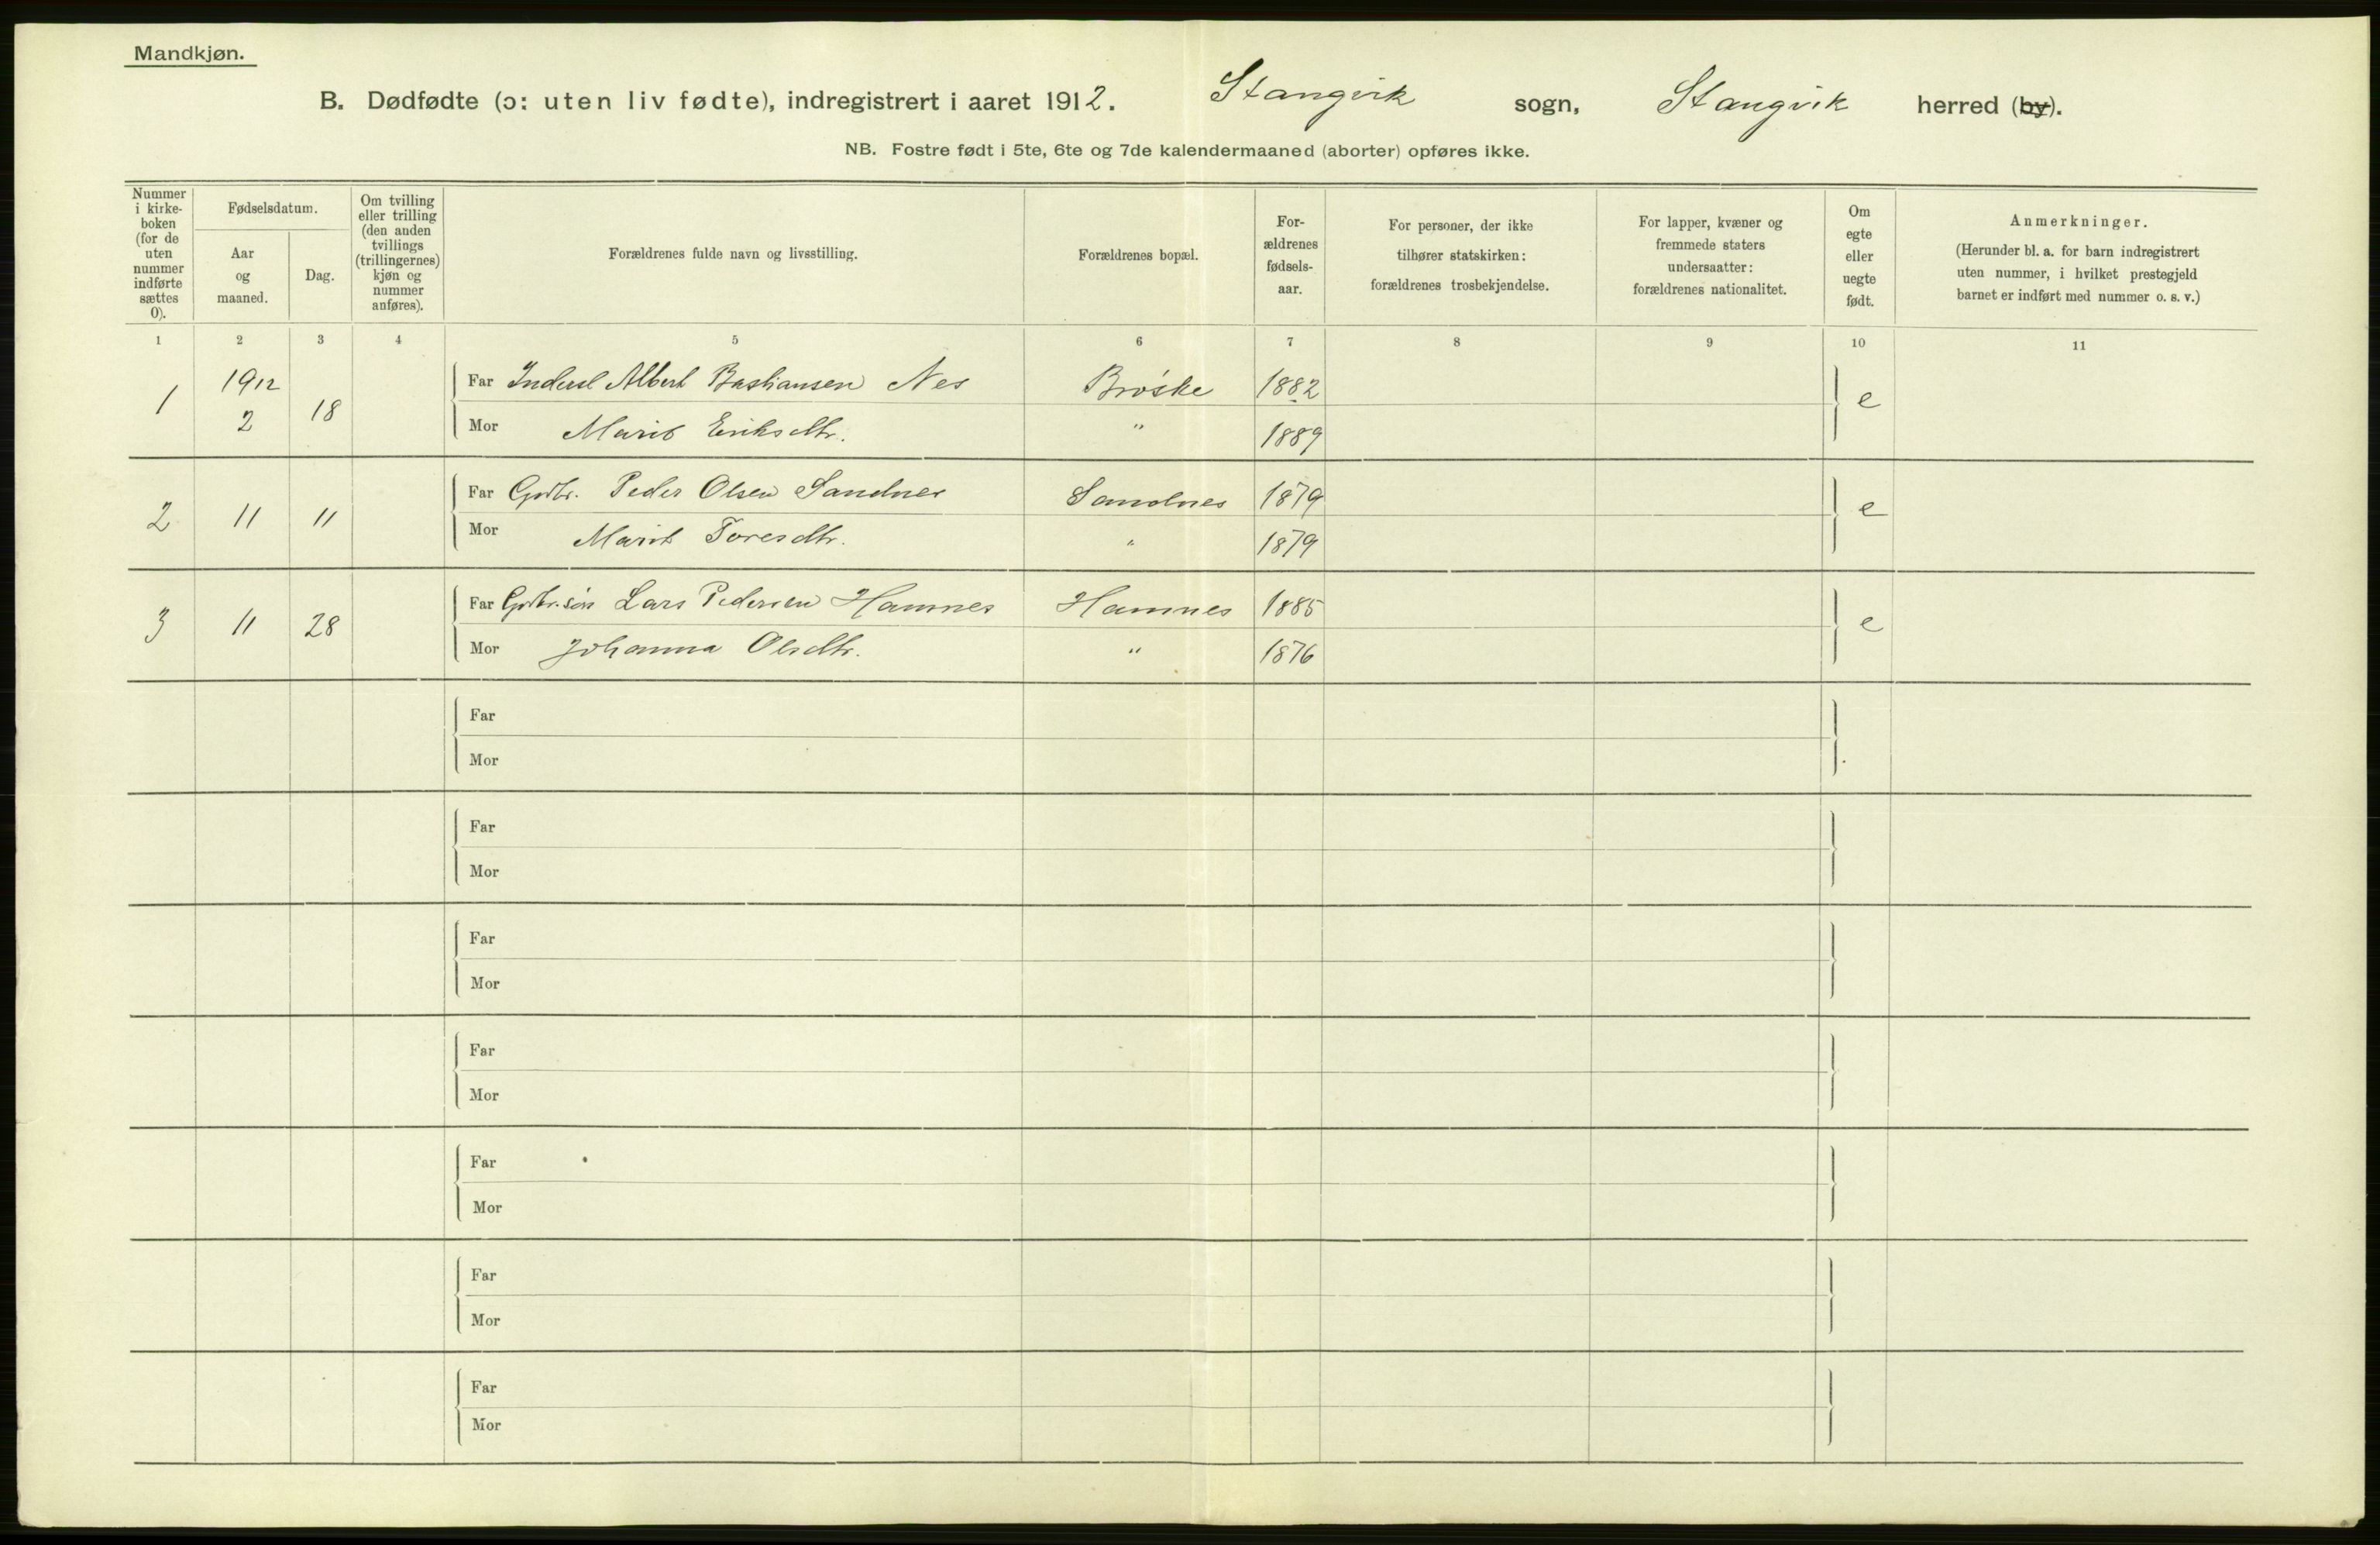 Mandkjøn.
B. Dødfødte (ɔ: uten liv fødte), indregistrert i aaret 1912. Stangvik sogn, Stangvik herred (by).
NB. Fostre født i 5te, 6te og 7de kalendermaaned (aborter) opføres ikke.
Nummer i kirke- boken (for de uten nummer indførte sættes 0).
Fødselsdatum.
Aar og maaned.
Dag.
Om tvilling eller trilling (den anden tvillings (trillingernes) kjøn og nummer anføres).
Forældrenes fulde navn og livsstilling.
Forældrenes bopæl.
For- ældrenes fødsels- aar.
For personer, der ikke tilhører statskirken: forældrenes trosbekjendelse.
For lapper, kvæner og fremmede staters undersaatter: forældrenes nationalitet.
Om egte eller uegte født.
Anmerkninger.
(Herunder bl. a. for barn indregistrert uten nummer, i hvilket prestegjeld barnet er indført med nummer o. s. v.)
1 2 3 4 5 6 7 8 9 10 11
1 1912 2 18 Far Inderst Albert Bastiansen Nes Brøske 1882 e
Mor Marit Eriksdtr. " 1889
2 11 11 Far Grdbr. Peder Olsen Sandnes Sandnes 1879 e
Mor Marit Toresdtr. " 1879
3 11 28 Far Grdbr.søn Lars Pedersen Hamnes Hamnes 1885 e
Mor Johanna Olsdtr. " 1876
Far
Mor
Far
Mor
Far
Mor
Far
Mor
Far
Mor
Far
Mor
Far
Mor